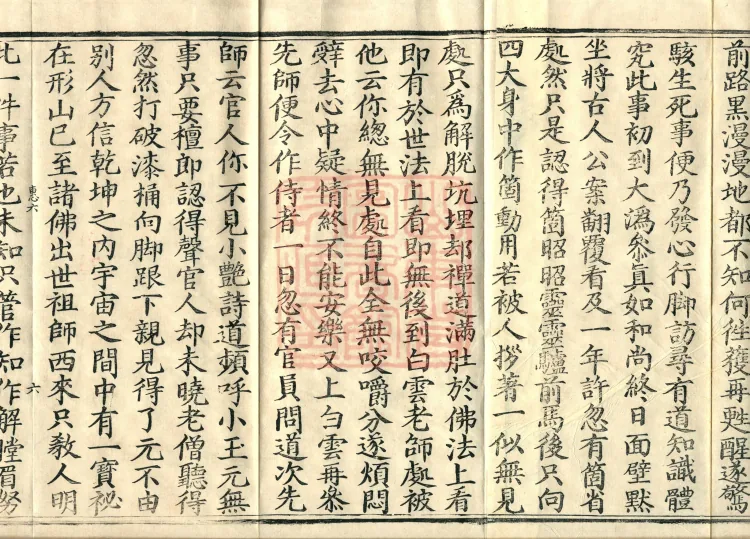 前路黑漫漫地都不知何徃獲再甦醒遂驚
駭生死事便乃發心行脚訪尋有道知識體
究此事初到大溈叅真如和尚終日面壁默
坐將古人公案翻覆看及一年許忽有箇省
處然只是認得箇昭昭靈靈驢前馬後只向
四大身中作箇動用若被人拶著一似無見
處只為解脫坑埋却禪道滿肚於佛法上看
即有於世法上看即無後到白雲老師處被
他云你緫無見處自此全無咬嚼分遂煩悶
辤去心中疑情終不能安樂又上白雲再叅
先師便令作侍者一日忽有官員問道次先
師云官人你不見小艷詩道頻呼小玉元無
事只要檀郎認得聲官人却未曉老僧聽得
忽然打破漆桶向脚跟下親見得了元不由
別人方信乾坤之內宇宙之間中有一寶祕
在形山已至諸佛出世祖師西來只教人明
六
此一件事若也未知只管作知作解瞠眉努